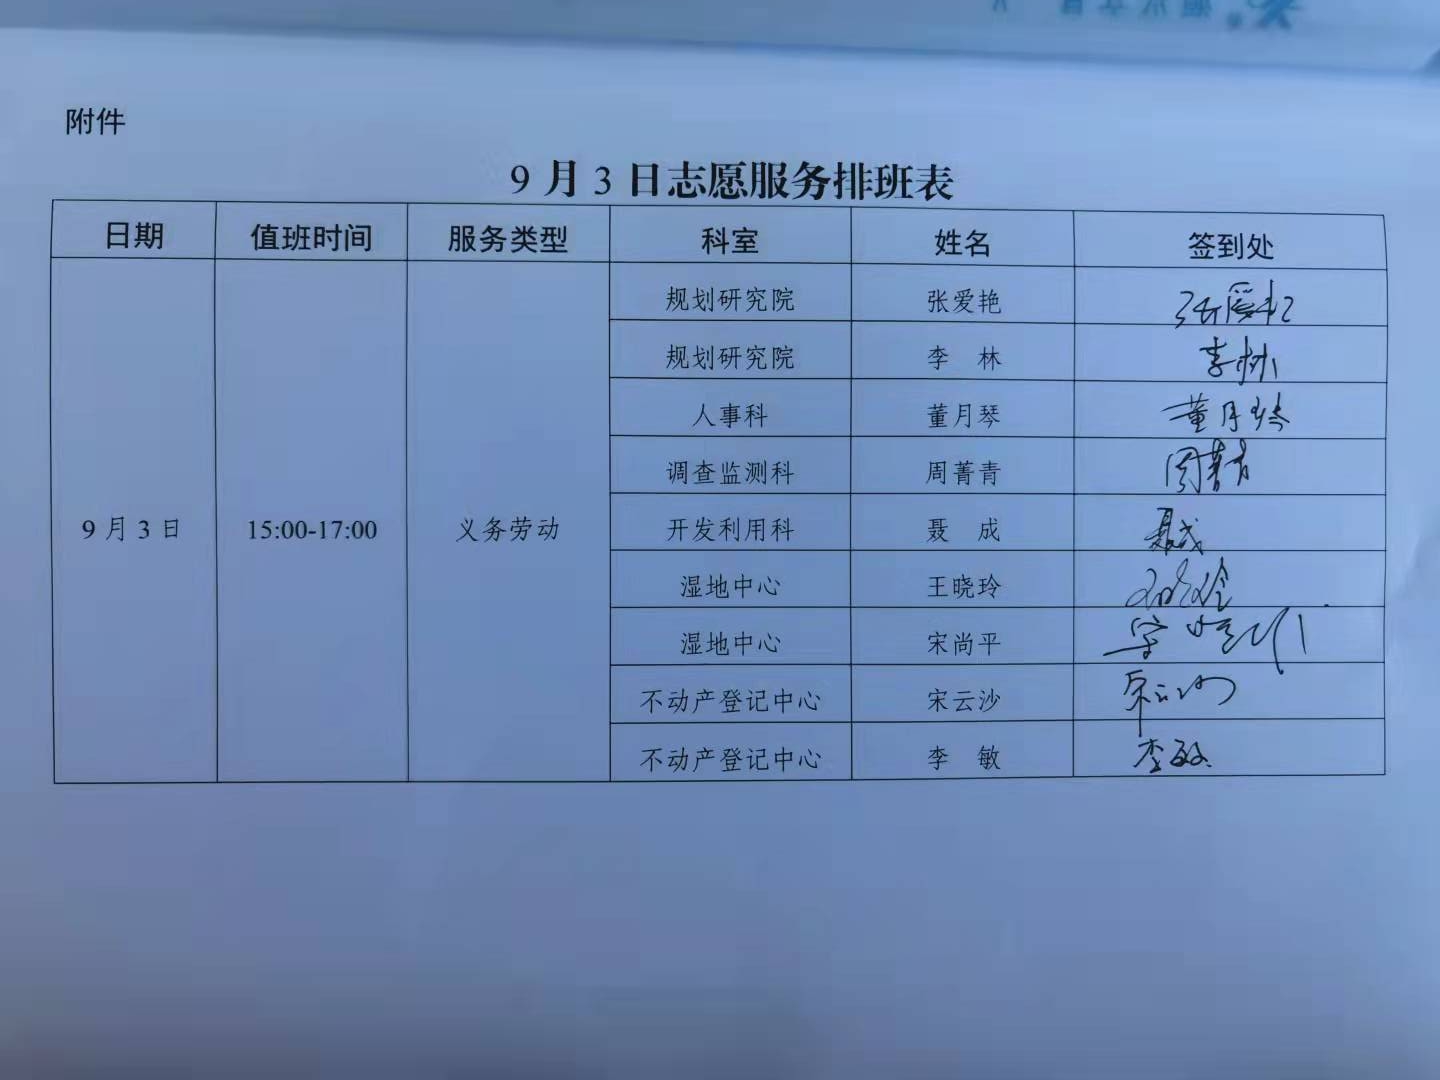 附件
9月3日志愿服务排班表
日期 值班时间 服务类型 科室 姓名 签到处
9月3日 15:00-17:00 义务劳动
规划研究院 张爱艳 张爱艳
规划研究院 李 林 李林
人事科 董月琴 董月琴
调查监测科 周菁青 周菁青
开发利用科 聂 成 聂成
湿地中心 王晓玲 王晓玲
湿地中心 宋尚平
不动产登记中心 宋云沙 宋云沙
不动产登记中心 李 敏 李敏